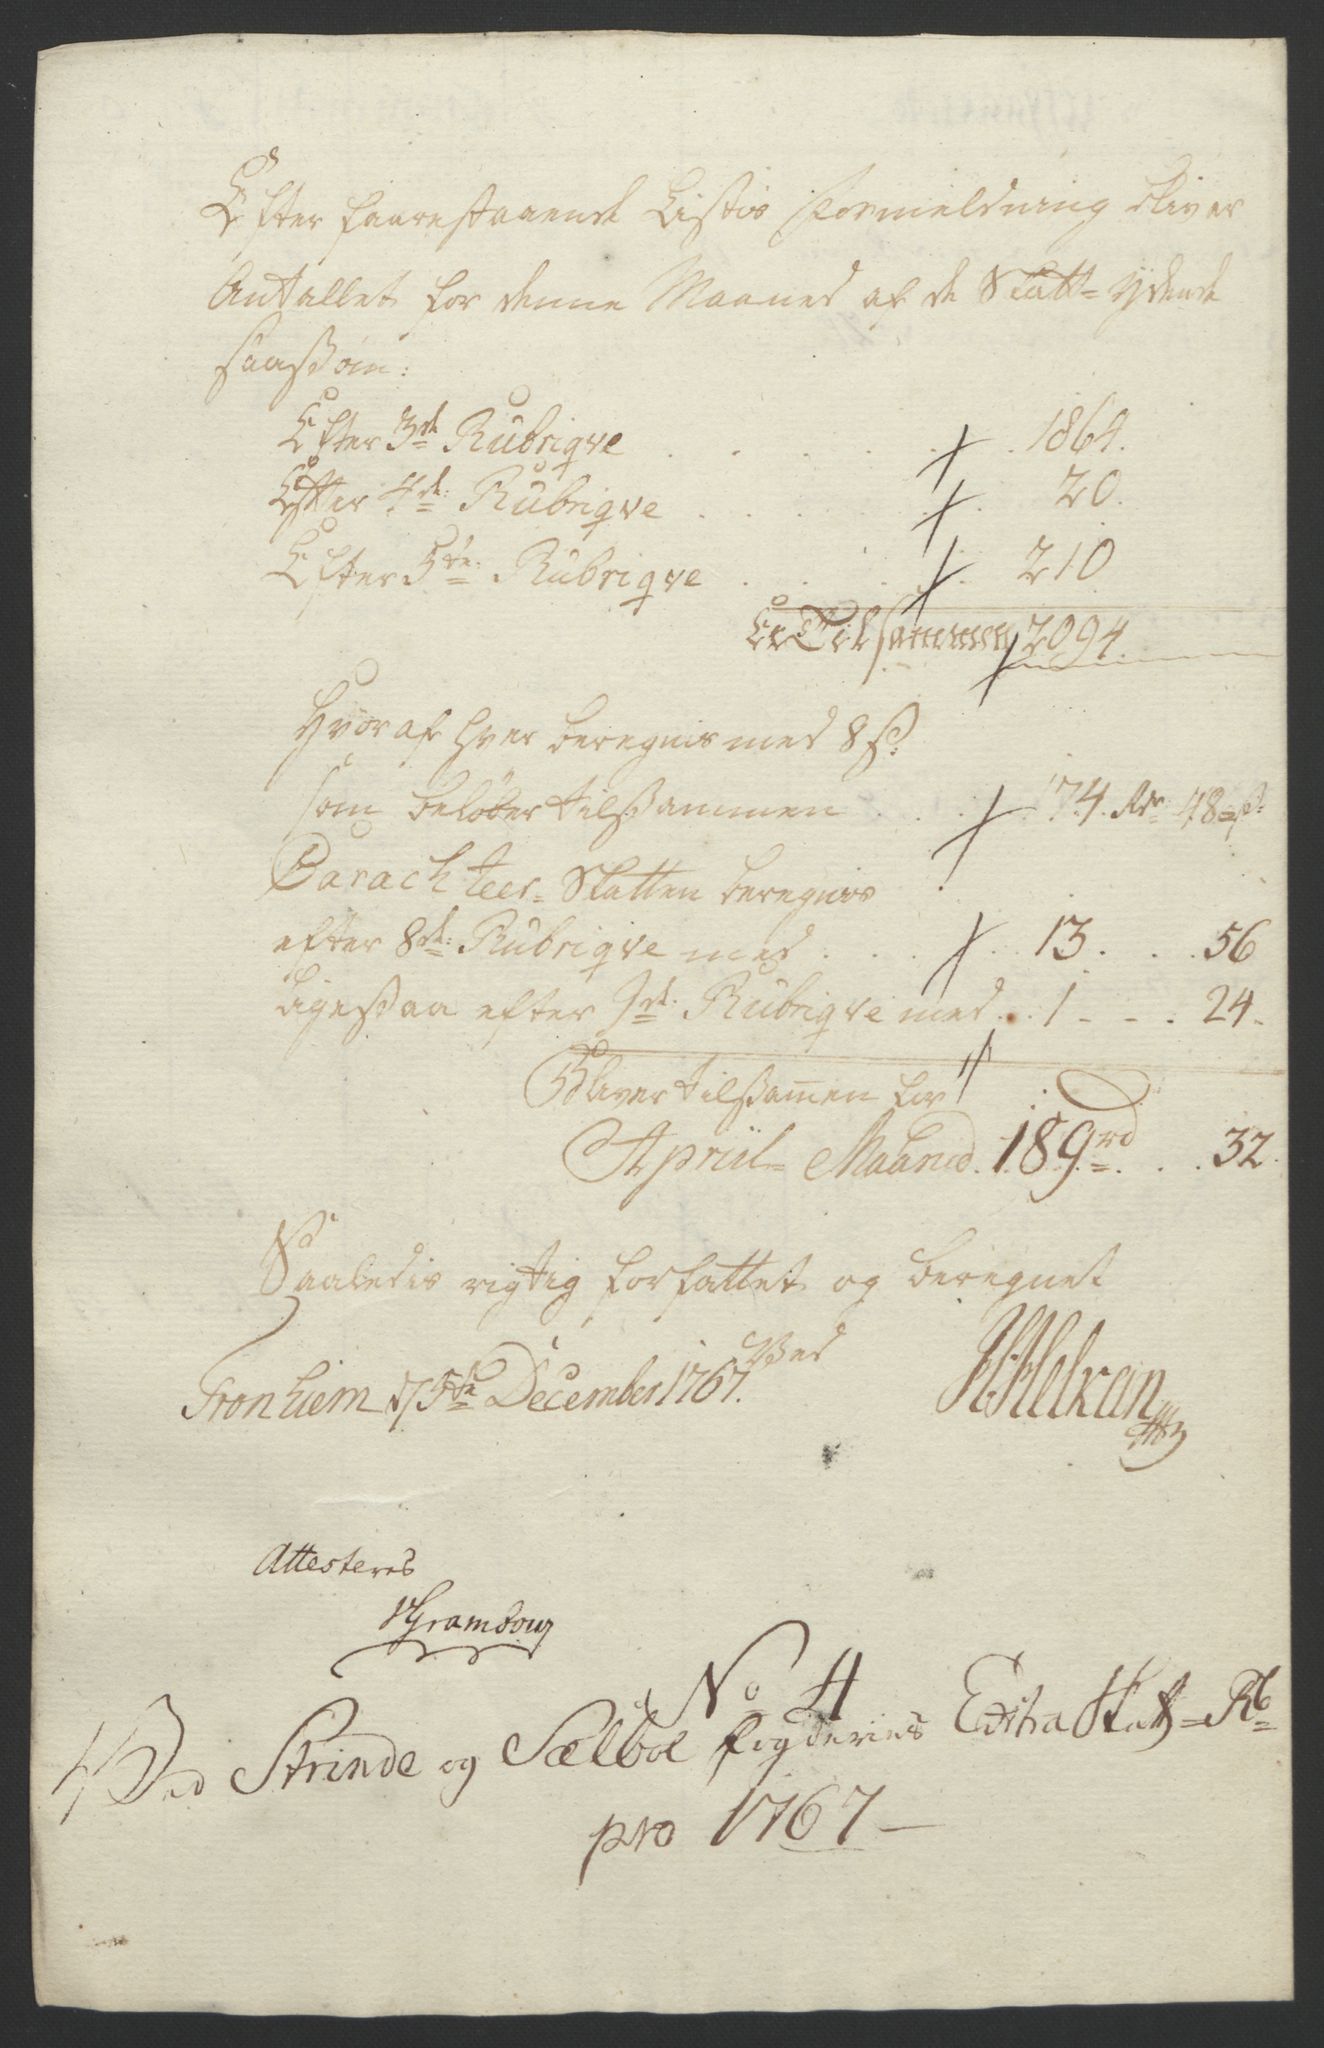 Efter faarestaaende Listes Formeldning bliver
Antallet for denne Maaned af de Skatt-ydende
saaßom:
Efter 3de Rubriqve . . . . . 1864.
Efter 4de: Rubriqve . . . . 20.
Efter 5te: Rubriqve . . . . 210
Er Tilsammen 2094.
Hvoraf hver beregnes med 8 ß:
som beløber tilßammen . . . 174. Rdr 48 ß:
Carachteer-Skatten beregnes
efter 8de: Rubriqve med . . . 13. . . . 56
ligesaa efter 9de: Rubriqve med . . 1 - - . 24-
Bliver tilßam̅en for
Apriil- Maaned. 189 rd . . . 32.
Saaledes rigtig forfattet og beregnet
Tronhiem d/ 5te December 1767. Ved
Attesteres
No 4
Ved Strinde og Sælboe fogderies Extra Skatt-R
pro 1767-